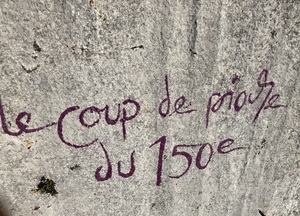 Le coup de pioche
du 150e